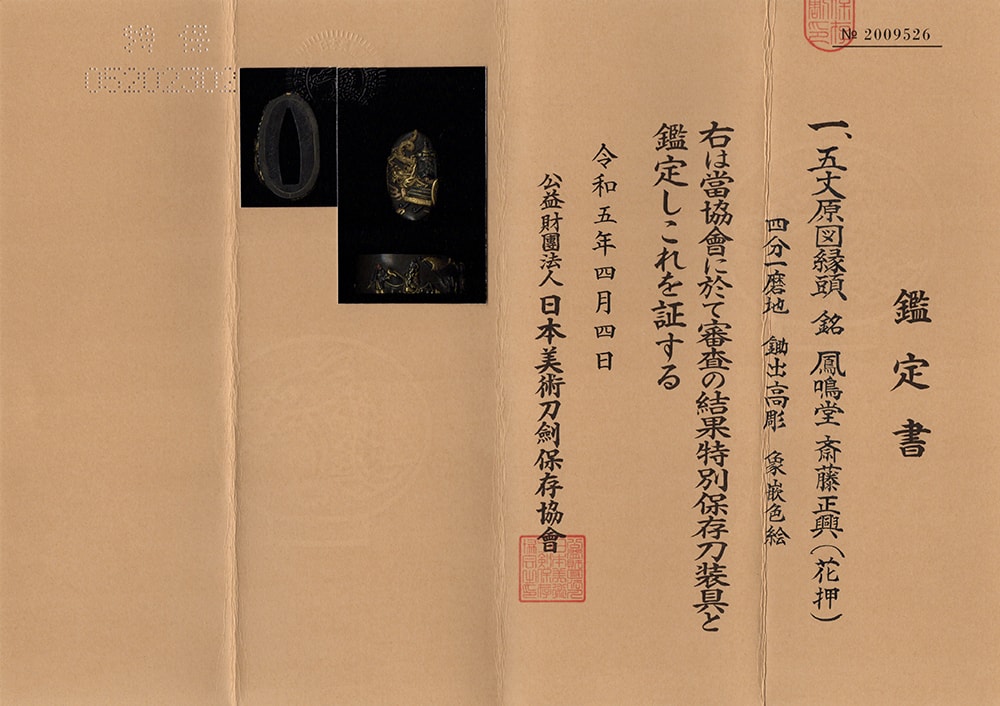 № 2009526
鑑定書
一、五丈原図縁頭 銘 鳳鳴堂 斎藤正興(花押)
四分一磨地 鋤出高彫 象嵌色絵
右は當協會に於て審査の結果特別保存刀装具と
鑑定しこれを証する
令和五年四月四日
公益財團法人 日本美術刀劍保存協會
特保
05202303